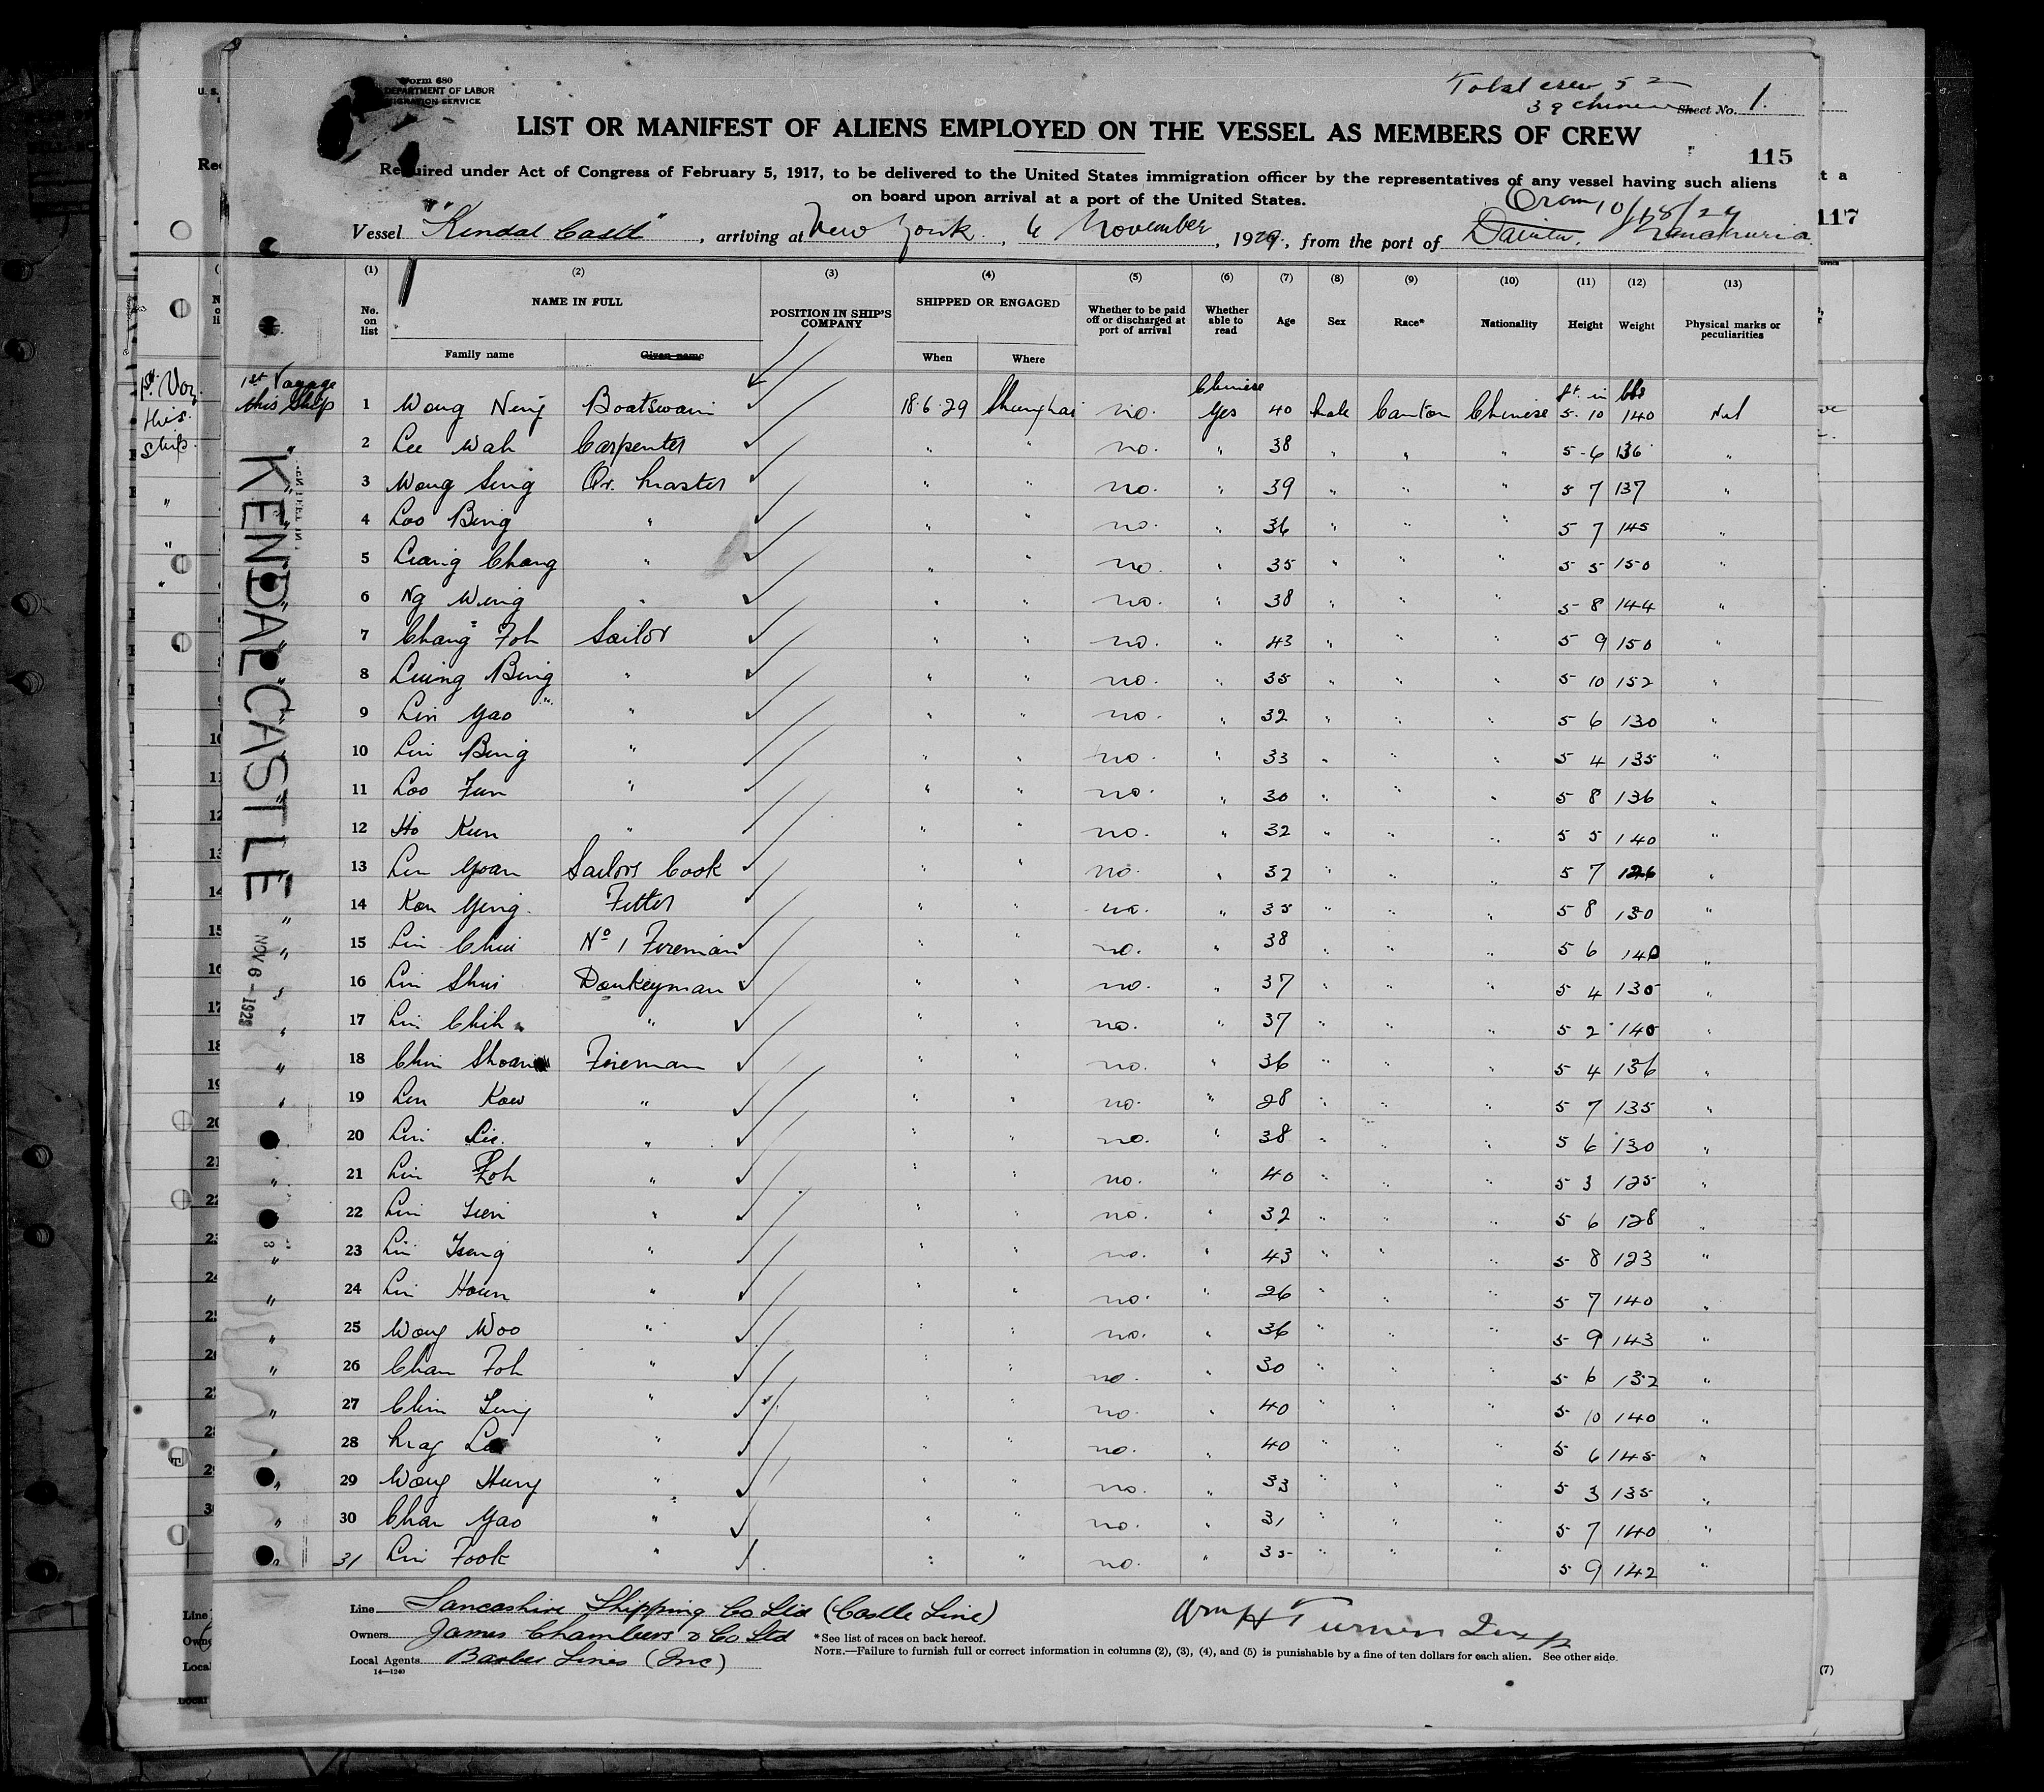 Form 680
DEPARTMENT OF LABOR
IMMIGRATION SERVICE
Total crew 52
39 Chinese
Sheet No. 1.
LIST OR MANIFEST OF ALIENS EMPLOYED ON THE VESSEL AS MEMBERS OF CREW
115
Required under Act of Congress of February 5, 1917, to be delivered to the United States immigration officer by the representatives of any vessel having such aliens
on board upon arrival at a port of the United States.
Vessel "Kendal Castle", arriving at New York, 6 November, 1929, from the port of Dairen, Manchuria
117
(1) (2) (3) (4) (5) (6) (7) (8) (9) (10) (11) (12) (13)
No. on list NAME IN FULL POSITION IN SHIP'S COMPANY SHIPPED OR ENGAGED Whether to be paid off or discharged at port of arrival Whether able to read Age Sex Race* Nationality Height Weight Physical marks or peculiarities
Family name Given name When Where
1st Voyage this ship
Chinese ft. in lbs
1 Wong Ning Boatswain 18.6.29 Shanghai no. Yes 40 Male Canton Chinese 5. 10 140 Nil
2 Lee Wah Carpenter " " no. " 38 " " " 5-6 136 "
3 Wong Sing Qr. Master " " no. " 39 " " " 5 7 137 "
4 Loo Bing " " " no. " 36 " " " 5 7 145 "
5 Liang Chang " " " no. " 35 " " " 5 5 150 "
6 Ng Wing " " " no. " 38 " " " 5 8 144 "
7 Chang Foh Sailor " " no. " 43 " " " 5 9 150 "
8 Luing Bing " " " no. " 35 " " " 5 10 152 "
9 Lin Yao " " " no. " 32 " " " 5 6 130 "
10 Lin Bing " " " no. " 33 " " " 5 4 135 "
11 Loo Fun " " " no. " 30 " " " 5 8 136 "
12 Ho Kun " " " no. " 32 " " " 5 5 140 "
13 Lin Yoan Sailors Cook " " no. " 32 " " " 5 7 126 "
14 Kan Ying Fitter " " no. " 35 " " " 5 8 130 "
15 Lin Chui No 1 Fireman " " no. " 38 " " " 5 6 140 "
16 Lin Shui Donkeyman " " no. " 37 " " " 5 4 130 "
17 Lin Chih " " " no. " 37 " " " 5 2 140 "
18 Chin Shoan Fireman " " no. " 36 " " " 5 4 136 "
19 Lin Kow " " " no. " 28 " " " 5 7 135 "
20 Lin Lie. " " " no. " 38 " " " 5 6 130 "
21 Lin Foh " " " no. " 40 " " " 5 3 125 "
22 Lin Lien " " " no. " 32 " " " 5 6 128 "
23 Lin Tseng " " " no. " 43 " " " 5 8 123 "
24 Lin Houn " " " no. " 26 " " " 5 7 140 "
25 Wong Woo " " " no. " 36 " " " 5 9 143 "
26 Chan Foh " " " no. " 30 " " " 5 6 132 "
27 Chin Ling " " " no. " 40 " " " 5 10 140 "
28 " " " no. " 40 " " " 5 6 145 "
29 Wong Hung " " " no. " 33 " " " 5 3 135 "
30 Chan Yao " " " no. " 31 " " " 5 7 140 "
31 Lin Fook " " " no. " 35 " " " 5 9 142 "
KENDAL CASTLE
NOV 6 - 1929
Line Lancashire Shipping Co Ltd (Castle Line)
Owners James Chambers & Co Ltd
Local Agents Barber Lines (Inc)
14—1240
*See list of races on back hereof.
NOTE.—Failure to furnish full or correct information in columns (2), (3), (4), and (5) is punishable by a fine of ten dollars for each alien. See other side.
Wm H Turner
(7)